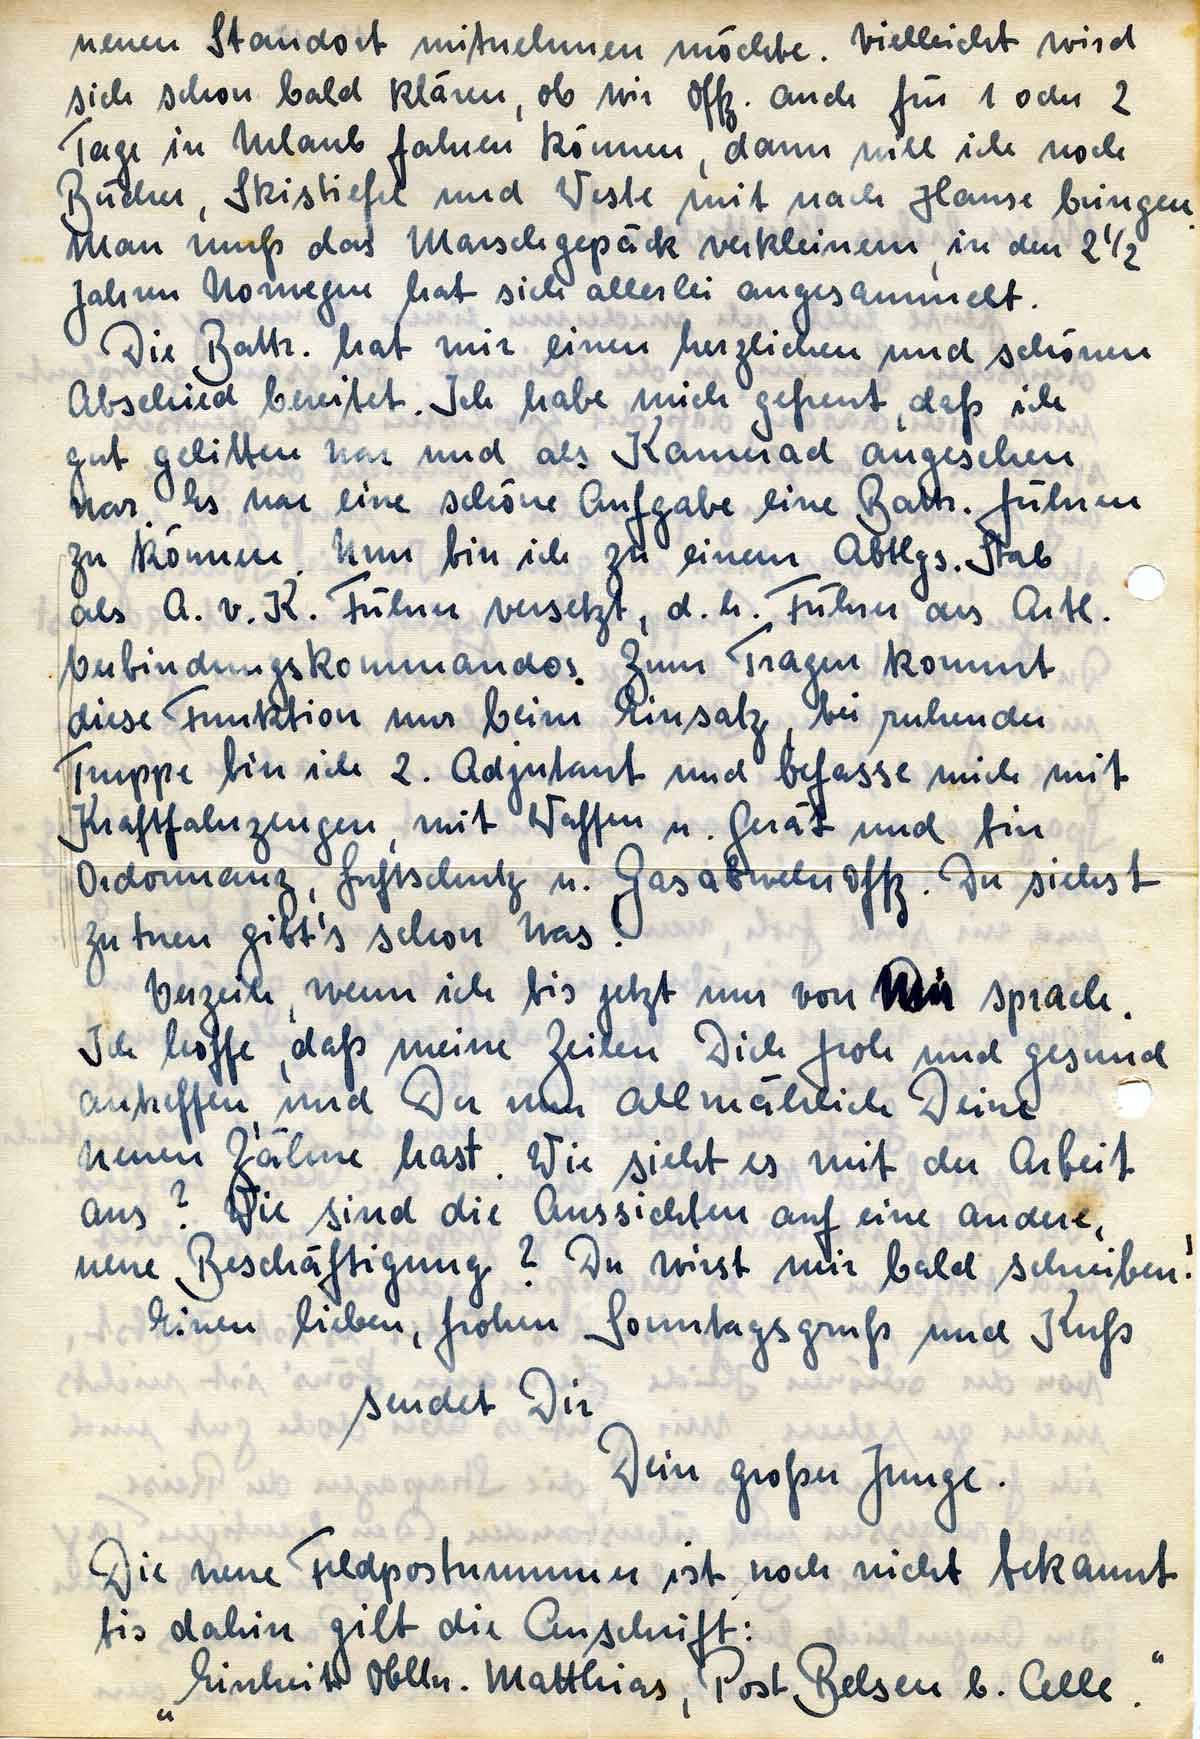 neuen Standort mitnehmen möchte. Vielleicht wird
sich schon bald klären, ob wir Offz. auch für 1 oder 2
Tage in Urlaub fahren können, dann will ich noch
Bücher, Skistiefel und Weste mit nach Hause bringen.
Man muß das Marschgepäck verkleinern, in den 2 1/2
Jahren Norwegen hat sich allerlei angesammelt.
Die Battr. hat mir einen herzlichen und schönen
Abschied bereitet. Ich habe mich gefreut, daß ich
gut gelitten war und als Kamerad angesehen
war. Es war eine schöne Aufgabe eine Battr. führen
zu können. Nun bin ich zu einem Abtlgs. Stab
als A. v. K. Führer versetzt, d. h. Führer des Artl.
Verbindungskommandos. Zum Tragen kommt
diese Funktion nur beim Einsatz, bei ruhender
Truppe bin ich 2. Adjutant und befasse mich mit
Kraftfahrzeugen, mit Waffen u. Gerät und bin
Ordonnanz, Luftschutz u. Gasabwehr Offz. Du siehst
zu tuen gibt's schon was!
Verzeih, wenn ich bis jetzt nur von mir sprach.
Ich hoffe, daß meine Zeilen Dich froh und gesund
antreffen, und Du nun allmählich Deine
neuen Zähne hast. Wie sieht es mit der Arbeit
aus? Wie sind die Aussichten auf eine andere,
neue Beschäftigung? Du wirst mir bald schreiben!
Einen lieben, frohen Sonntagsgruß und Kuß
sendet Dir
Dein großer Junge.
Die neue Feldpostnummer ist noch nicht bekannt
bis dahin gilt die Anschrift:
„Einheit Obltn. Matthias, Post Belsen b. Celle."